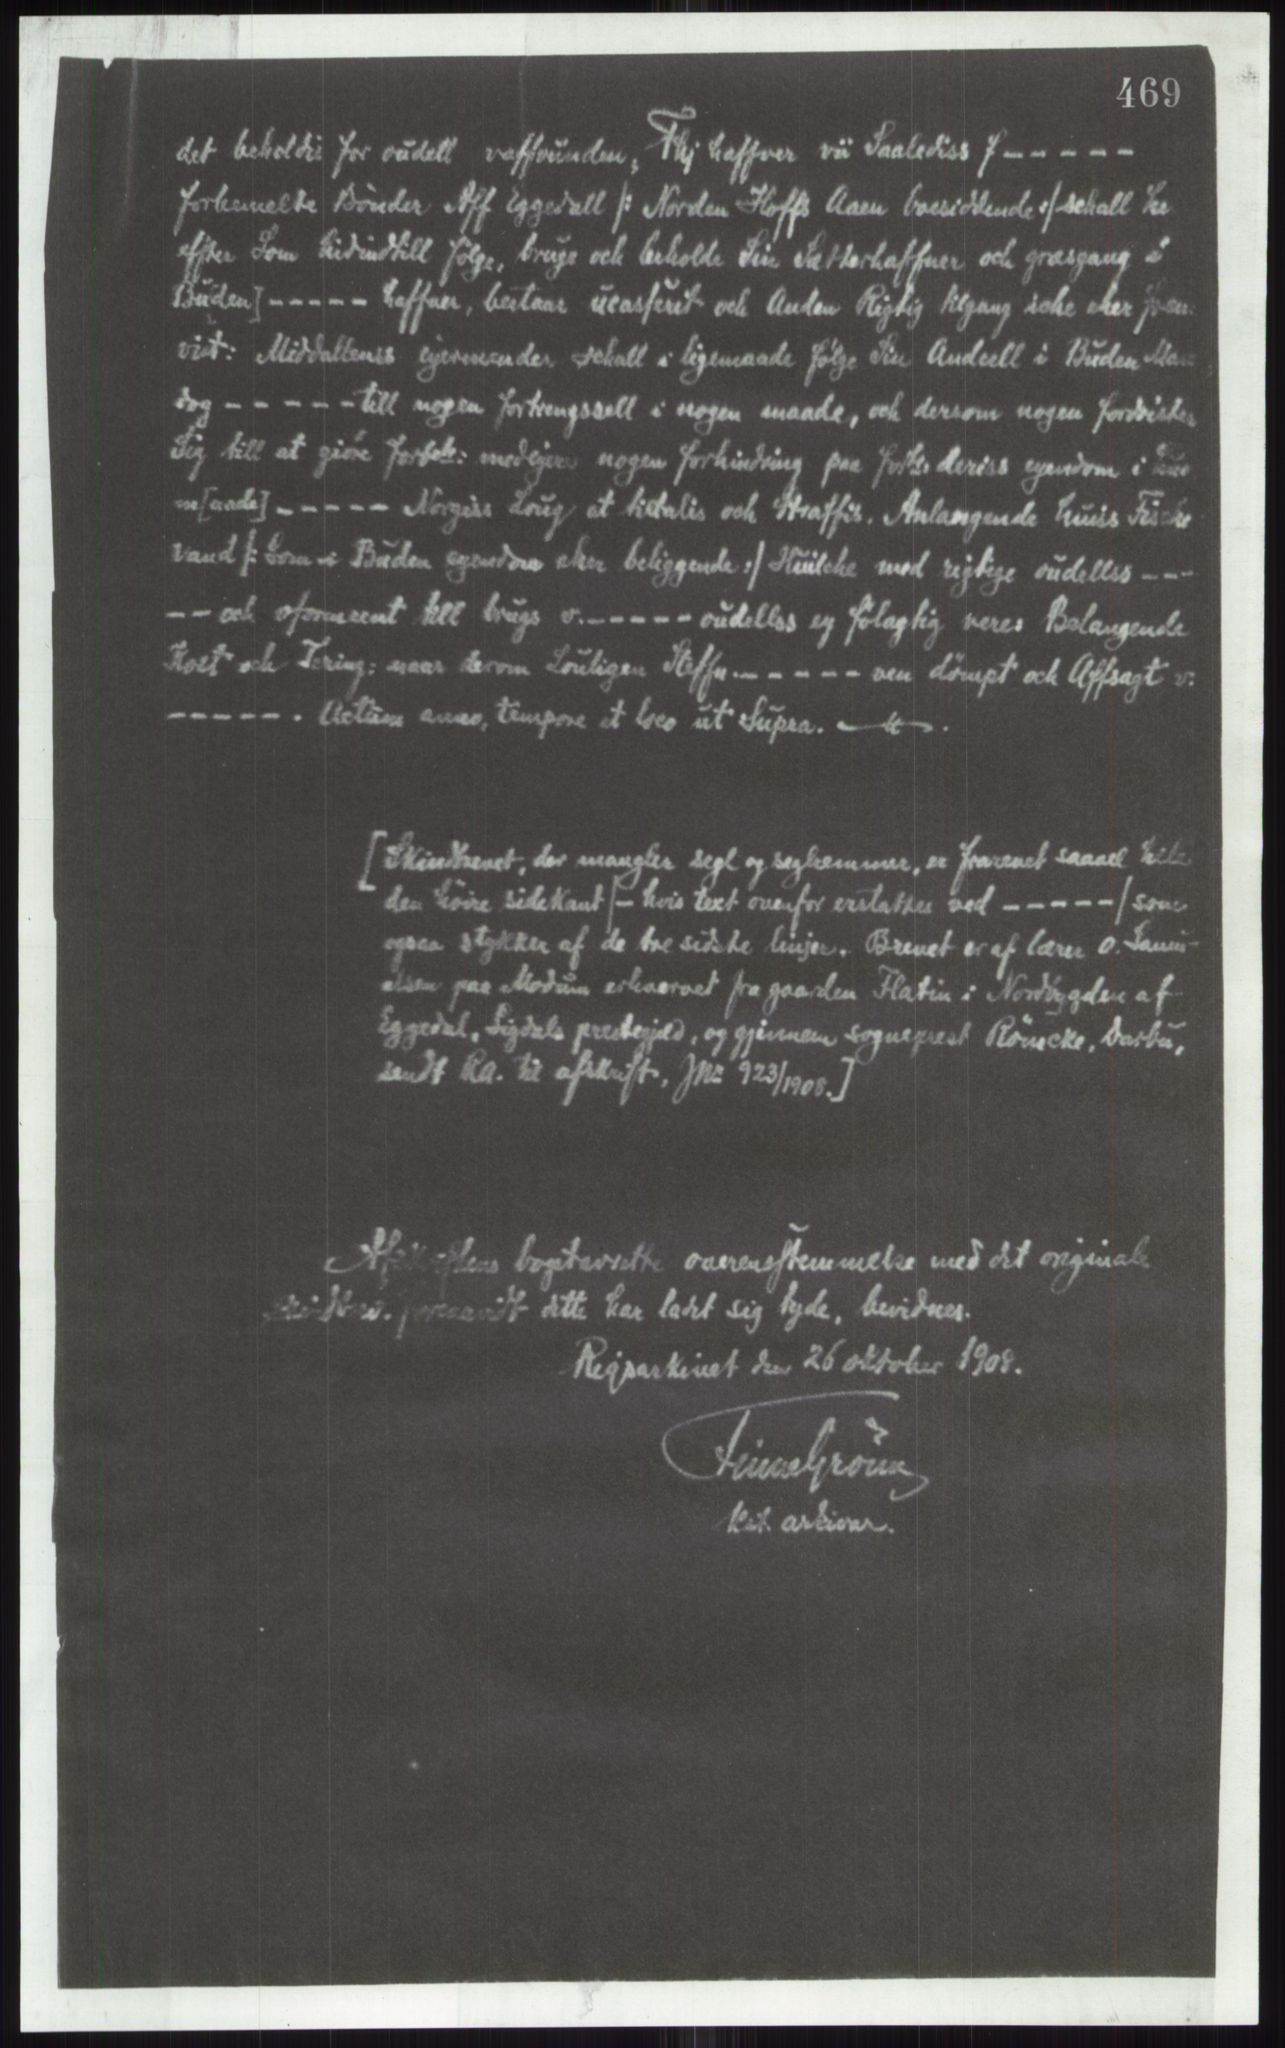 469
det beholdis for oudell vaffvunden, Thj haffver vii Saalediss f-----
forbemelte Bönder Aff Eggedall /: Norden Hoffs Aaen boesiddende :/ schall he
effter Som hidindtill følge, bruge och beholde Sin Sætterhaffner och græsgang i
Buden] ----- haffner, bestaar ucasserit och Anden Rigtig tilgang iche eher
vist: Middaltenss eyermænder schall i ligemaade følge Sin Andeell i Buden
dog ----- till nogen fortrengssell i nogen maade, och dersom nogen fordrister
Sig till at giöre forbete: medeyere nogen forhindring paa forbe: deriss eyendom i
m[aade] ----- Norgiss Loug at tiltalis och Straffis. Anlangende huiss Fische
vand /: Som i Buden eyendom eher beliggende :/ Huilche med rigtige oudellss ---
-- och til brugs o. ----- oudellss ey fölagtig vere. Belangende
Kost och Tering: naar derom Louligen Steffn. ----- ven dömpt och Affsagt v.
-----. Actum anno, tempore et loco ut Supra.
[Skindbrevet, der mangler segl og seglremmer, er frarevet saavel hele
den höire sidekant /- hvis text ovenfor erstattes ved -----/ som
ogsaa stykker af de tre sidste linjer. Brevet er af lærer O. Samu-
elsen paa Modum erhvervet fra gaarden Flatin i Nordbygden af
Eggedal, Sigdals prestegjæld, og gjennem sogneprest Röncke, Darbu,
sendt RA. til afskrift, JNr 923/1908.]
Afskriftens bogstavrette overensstemmelse med det originale
skindbrev, forsaavidt dette har ladet sig tyde, bevidnes.
Rigsarkivet den 26 oktober 1908.
Finne Grönn
kst. arkivar.